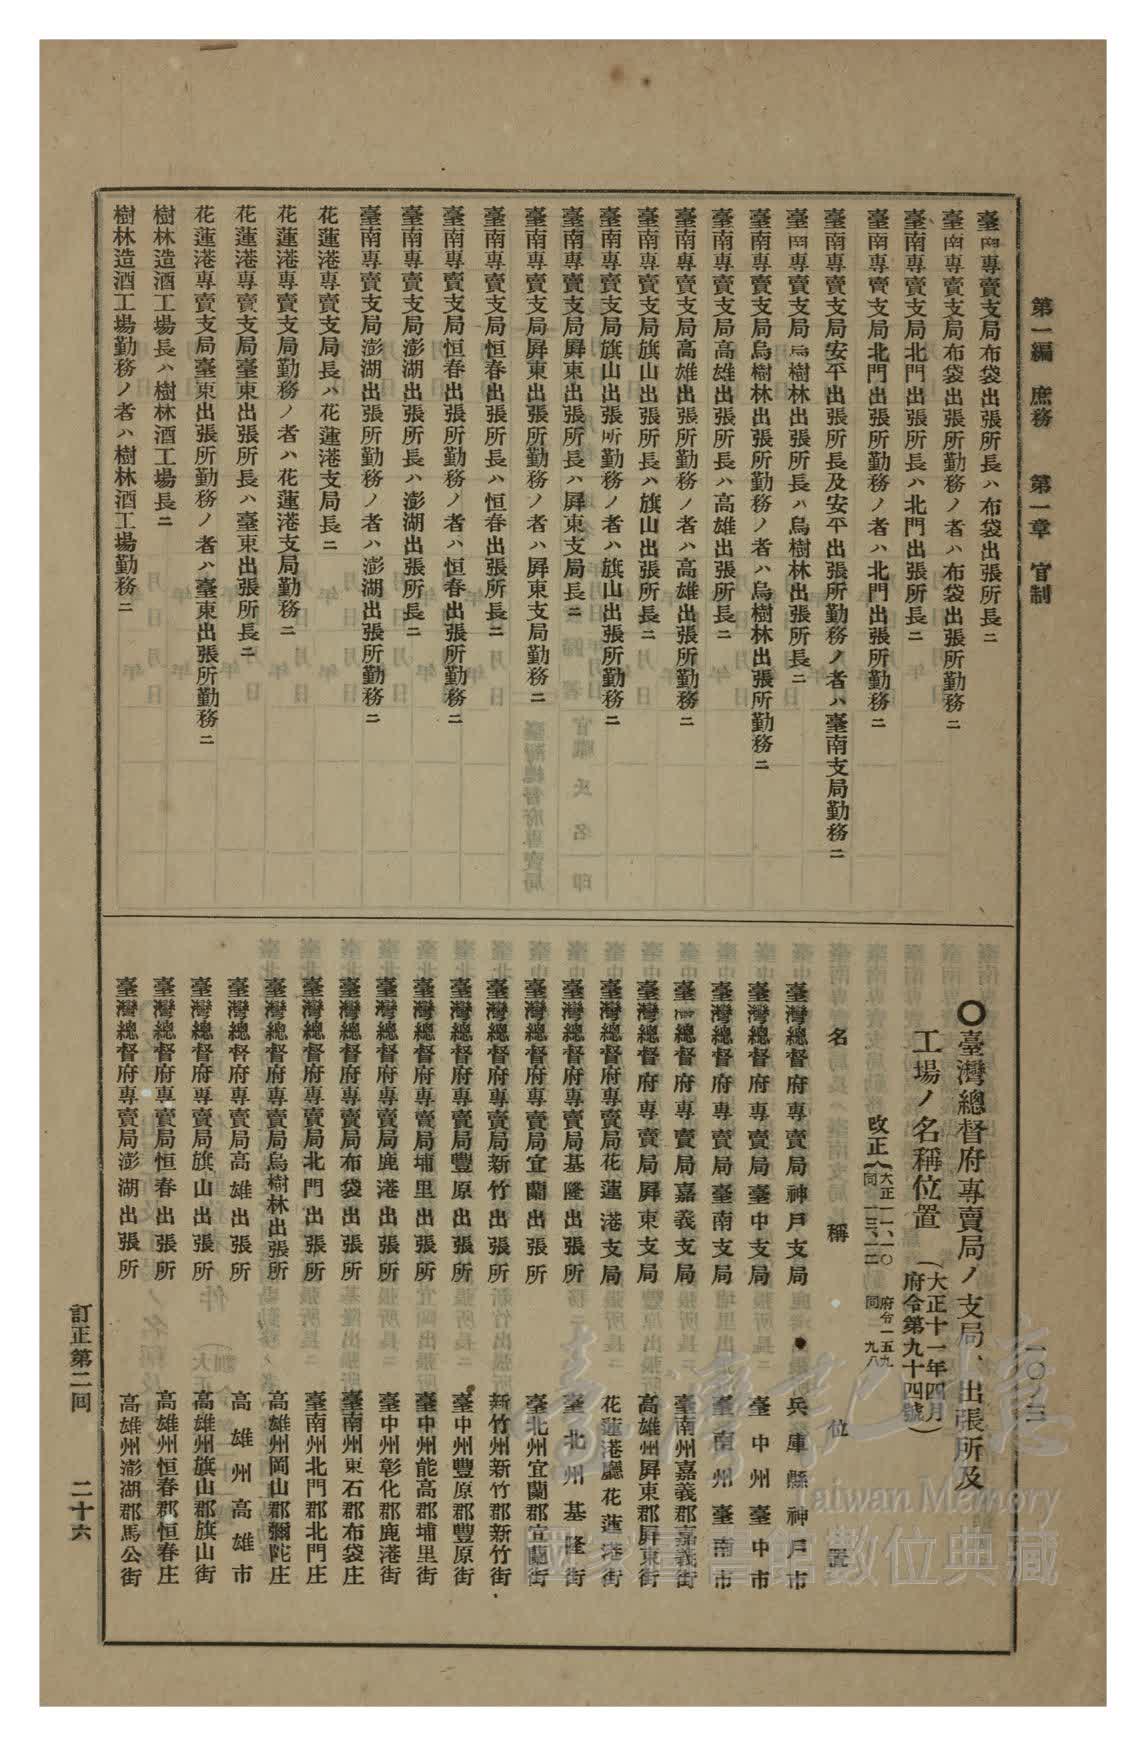 第一編　庶務　　第一章　官制
一〇ノ三
臺南專賣支局布袋出張所長ハ布袋出張所長ニ
臺南專賣支局布袋出張所勤務ノ者ハ布袋出張所勤務ニ
臺南專賣支局北門出張所長ハ北門出張所長ニ
臺南專賣支局北門出張所勤務ノ者ハ北門出張所勤務ニ
臺南專賣支局安平出張所長及安平出張所勤務ノ者ハ臺南支局勤務ニ
臺南專賣支局烏樹林出張所長ハ烏樹林出張所長ニ
臺南專賣支局烏樹林出張所勤務ノ者ハ烏樹林出張所勤務ニ
臺南專賣支局高雄出張所長ハ高雄出張所長ニ
臺南專賣支局高雄出張所勤務ノ者ハ高雄出張所勤務ニ
臺南專賣支局旗山出張所長ハ旗山出張所長ニ
臺南專賣支局旗山出張所勤務ノ者ハ旗山出張所勤務ニ
臺南專賣支局屏東出張所長ハ屏東支局長ニ
臺南專賣支局屏東出張所勤務ノ者ハ屏東支局勤務ニ
臺南專賣支局恒春出張所長ハ恒春出張所長ニ
臺南專賣支局恒春出張所勤務ノ者ハ恒春出張所勤務ニ
臺南專賣支局澎湖出張所長ハ澎湖出張所長ニ
臺南專賣支局澎湖出張所勤務ノ者ハ澎湖出張所勤務ニ
花蓮港專賣支局長ハ花蓮港支局長ニ
花蓮港專賣支局勤務ノ者ハ花蓮港支局勤務ニ
花蓮港專賣支局臺東出張所長ハ臺東出張所長ニ
花蓮港專賣支局臺東出張所勤務ノ者ハ臺東出張所勤務ニ
樹林造酒工場長ハ樹林酒工場長ニ
樹林造酒工場勤務ノ者ハ樹林酒工場勤務ニ
〇臺灣總督府專賣局ノ支局、出張所及
工場ノ名稱位置
（大正十一年四月
府令第九十四號）
改正
大正一一・一〇　府令一五九
同　一三・一二　同　九八
名　稱　位　置
臺灣總督府專賣局神戶支局　兵庫縣神戶市
臺灣總督府專賣局臺中支局　臺中州臺中市
臺灣總督府專賣局臺南支局　臺南州臺南市
臺灣總督府專賣局嘉義支局　臺南州嘉義郡嘉義街
臺灣總督府專賣局屏東支局　高雄州屏東郡屏東街
臺灣總督府專賣局花蓮港支局　花蓮港廳花蓮港街
臺灣總督府專賣局基隆出張所　臺北州基隆街
臺灣總督府專賣局宜蘭出張所　臺北州宜蘭郡宜蘭街
臺灣總督府專賣局新竹出張所　新竹州新竹郡新竹街
臺灣總督府專賣局豐原出張所　臺中州豐原郡豐原街
臺灣總督府專賣局埔里出張所　臺中州能高郡埔里街
臺灣總督府專賣局鹿港出張所　臺中州彰化郡鹿港街
臺灣總督府專賣局布袋出張所　臺南州東石郡布袋庄
臺灣總督府專賣局北門出張所　臺南州北門郡北門庄
臺灣總督府專賣局烏樹林出張所　高雄州岡山郡彌陀庄
臺灣總督府專賣局高雄出張所　高雄州高雄市
臺灣總督府專賣局旗山出張所　高雄州旗山郡旗山街
臺灣總督府專賣局恒春出張所　高雄州恒春郡恒春庄
臺灣總督府專賣局澎湖出張所　高雄州澎湖郡馬公街
訂正第二回　　二十六
臺灣記憶
Taiwan Memory
國家圖書館數位典藏